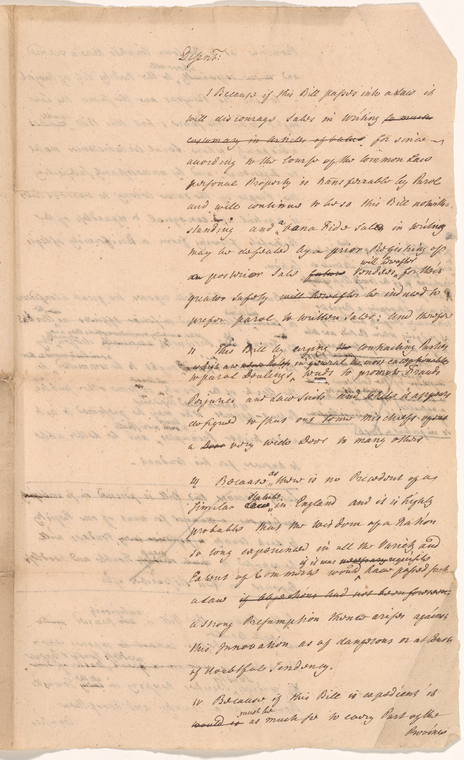 Dissent.
1 Because if this Bill passes into a Law it
will discourage Sales in Writing to much
customary in Articles of Value, for since
according to the Course of the Common Law
personal Property is transferrable by Parol
and will continue to be so this Bill notwith
standing and a bona Fide Sale in Writing
may be defeated by a prior Registring of
an posterior Sale Vendees will hereafter for their
greater Safety will hereafter be induced to
prefer parol to written Sales: And therefore
11 This Bill by urging the contracting Parties
to parol Dealings, which are in general the most easily tends to promote Frauds
Perjuries and Law Suits and while it appears
designed to shut out some Mischiefs opens
a Door very wide Door to many others
111 Because as there is no Precedent of a
similar Law Statute in England and it is highly
probable that the Wisdom of a Nation
so long experienced in all the Variety and
Extent of Commerce would if it was have passed such
a Law if Objections had not been foreseen
a strong Presumption thence arises against
this Innovation as of dangerous or at least
of doubtful Tendency.
1V Because if this Bill is expedient it
would is must be as much so to every Part of the
Province